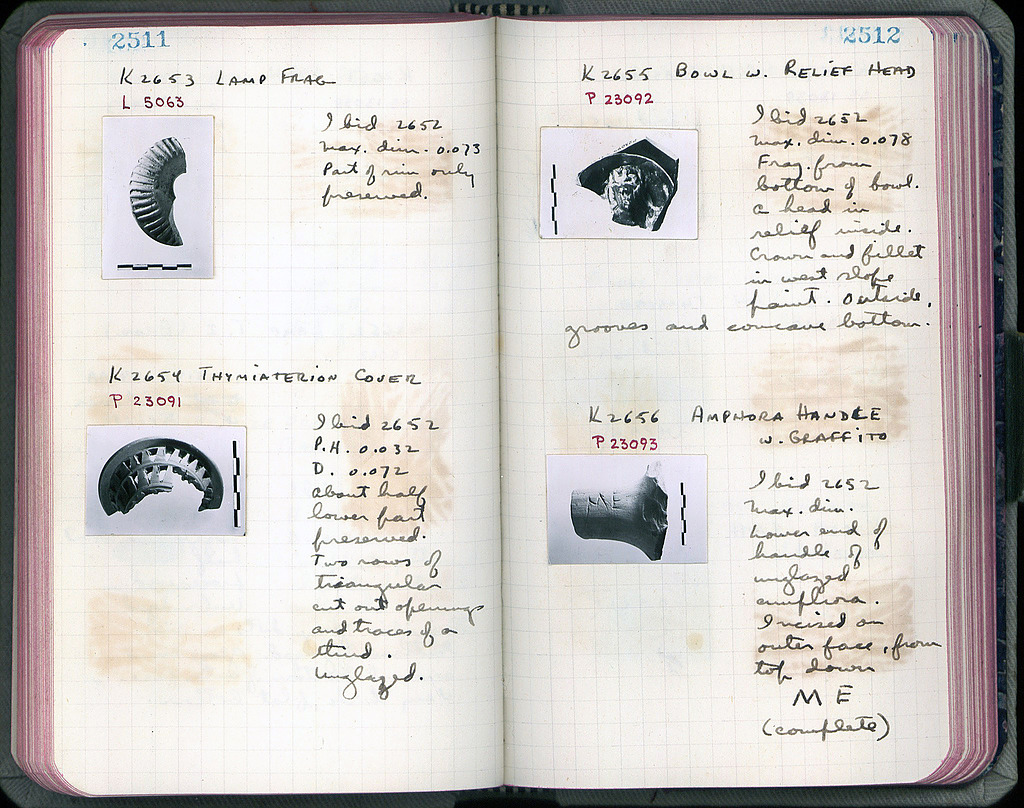 2511
K 2653 LAMP FRAG
L 5063
Ibid 2652
Max. dim. 0.073
Part of rim only
preserved.
K 2654 THYMIATERION COVER
P 23091
Ibid 2652
P.H. 0.032
D. 0.072
About half
lower part
preserved.
Two rows of
triangular
cut out openings
and traces of a
third.
Unglazed.
2512
K 2655 BOWL W. RELIEF HEAD
P 23092
Ibid 2652
Max. dim. 0.078
Frag. from
bottom of bowl.
A head in
relief inside.
Crown and fillet
in west slope
paint. Outside,
grooves and concave bottom.
K2656 AMPHORA HANDLE
W. GRAFFITO
P 23093
ME
Ibid 2652
Max. dim.
Lower end of
handle of
unglazed
amphora.
Incised on
outer face, from
top down
M E
(complete)